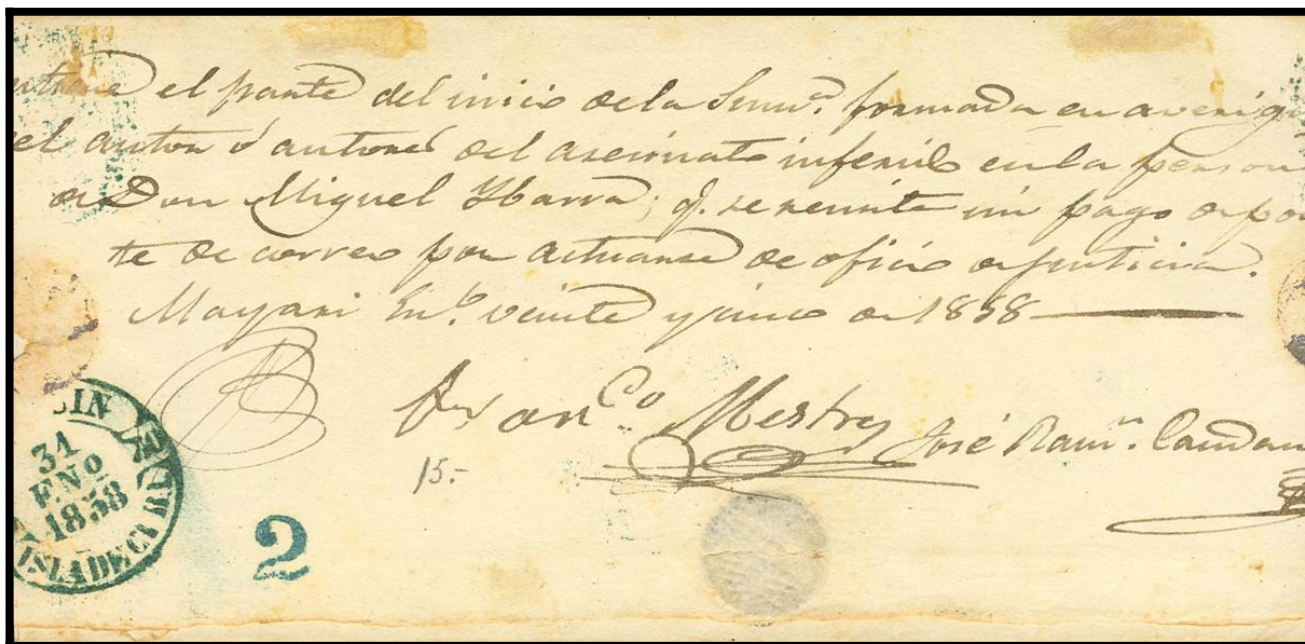 el parte del inicio de la Sum.ª formada en averigu
el autor ó autores del asecinato inferido en la person
de Don Miguel Ybarra; q.e se remite sin pago de por
te de correo por actuarse de oficio de justicia.
Mayari En.º veinte y cinco de 1858
Fran.co Mestre José Ram.n
15.-
SIN
31
ENO
1858
ISLA DE CUBA
2